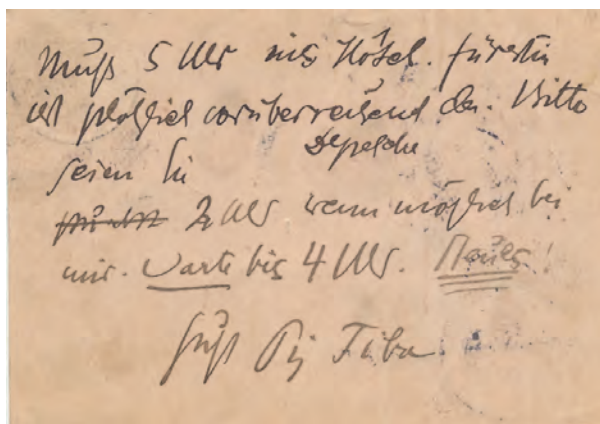 Muß 5 Uhr ins Hôtel. Fürstin
ist plötzlich vorüberreisend da. Bitte
Depesche
seien Sie
2 Uhr wenn möglich bei
mir. Warte bis 4 Uhr.